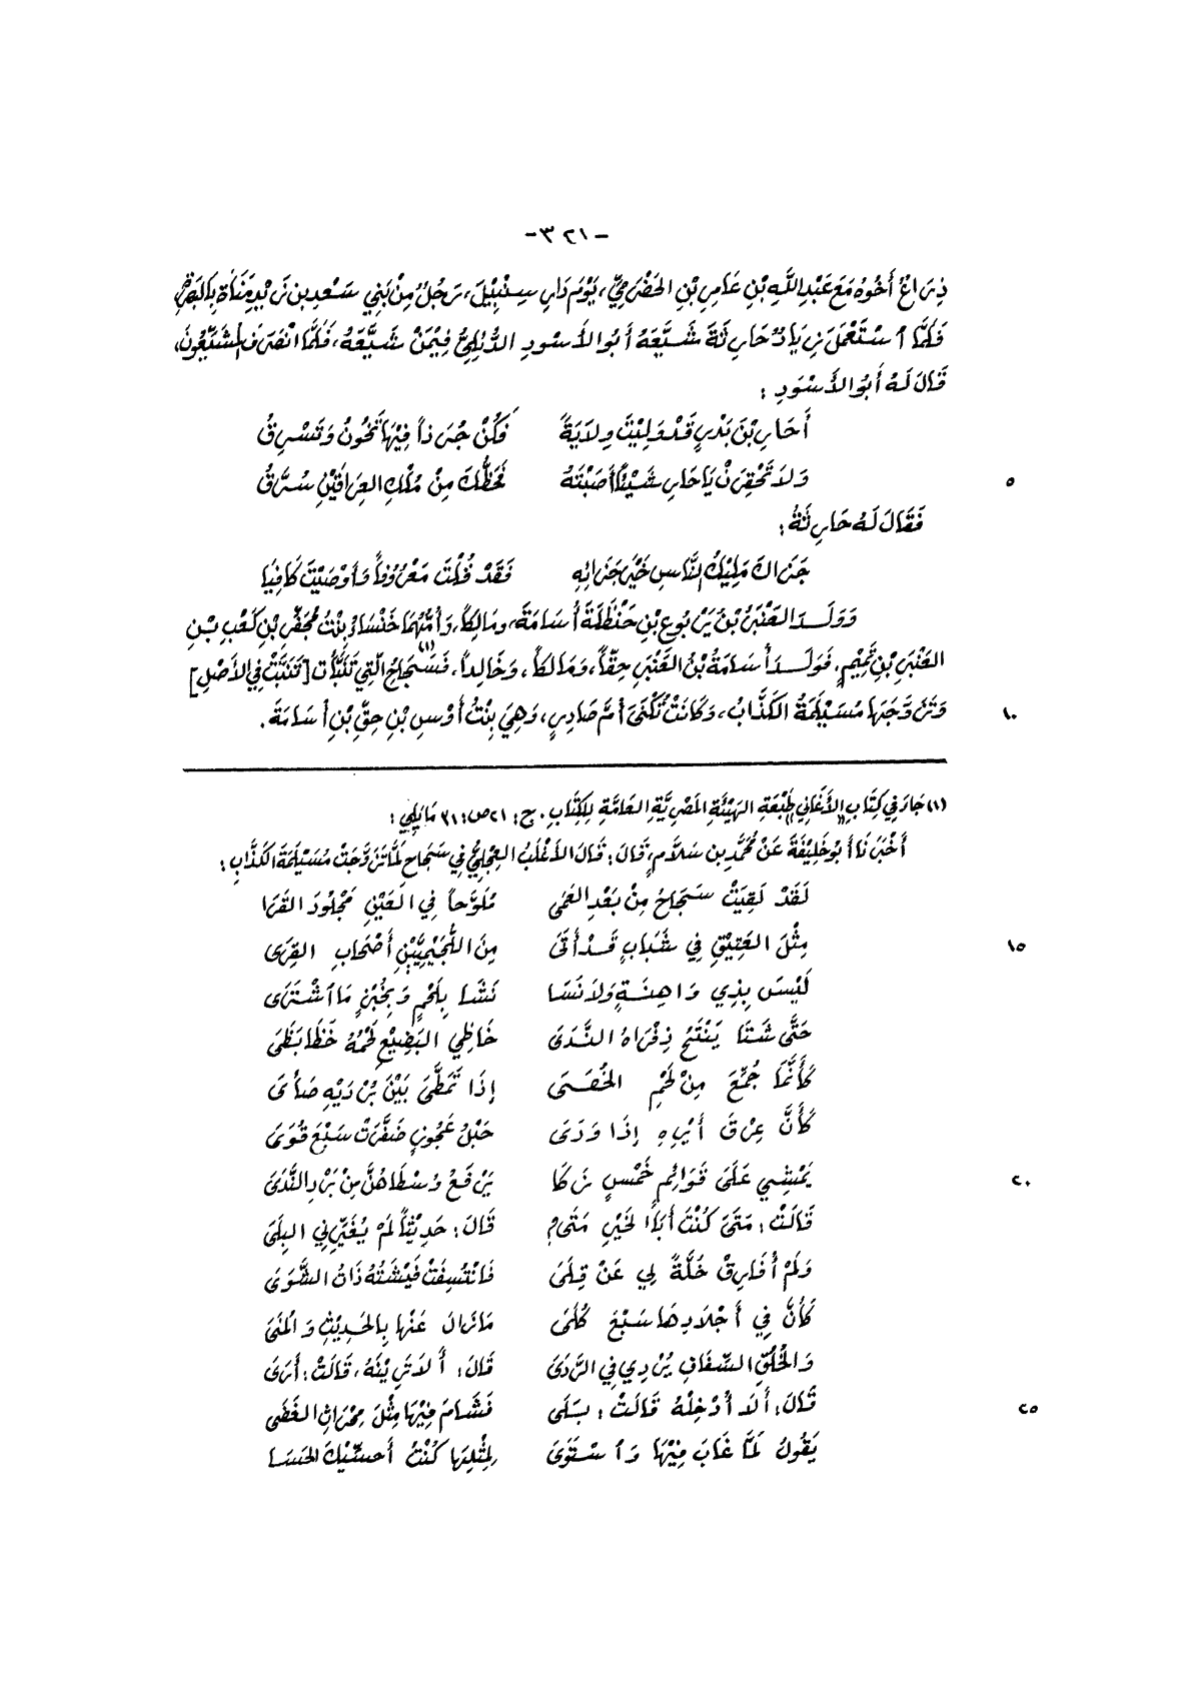 -٣٢١-
ذِرَاعٌ أَخُوهُ مَعَ عَبْدِ اللَّهِ بْنِ عَامِرِ بْنِ الحَضْرَمِيِّ، يَوْمَ دَارِ سِنْبِيْلَ، رَجُلٌ مِنْ بَنِي سَعْدِ بنِ زَيْدِ مَنَاةَ بِالبَصْرَةِ
فَلَمَّا ٱسْتَعْمَلَ زِيَادٌ حَارِثَةَ شَيَّعَهُ أَبُو الأَسْودِ الدُّئِلِيُّ فِيْمَنْ شَيَّعَهُ، فَلَمَّا انْصَرَفَ المُشَيِّعُونَ،
قَالَ لَهُ أَبُو الأَسْوَدِ :
أَحَارِ بْنَ بَدْرٍ قَدْ وَلِيْتَ وِلاَيَةً فَكُنْ جُرَذاً فِيْهَا تَخُونُ وَتَسْرِقُ
وَلاَ تَحْقِرَنْ يَا حَارِ شَيْئًا أَصَبْتَهُ فَحَظُّكَ مِنْ مُلْكِ العِرَاقَيْنِ سُرَّقُ
٥
فَقَالَ لَهُ حَارِثَةُ :
جَزَاكَ مَلِيْكُ النَّاسِ خَيْرَ جَزَائِهِ فَقَدْ قُلْتَ مَعْرُوفاً وَأَوْصَيْتَ كَافِيَا
وَوَلَدَ العَنْبَرُ بْنُ يَرْبُوعِ بْنِ حَنْظَلَةَ أُسَامَةَ، ومَالِكاً، وَأُمُّهُمَا خَنْسَاءُ بِنْتُ مُجَفِّرِ بْنِ كَعْبِ بْنِ
العَنْبَرِ بْنِ تَمِيْمٍ. فَوَلَدَ أُسَامَةُ بْنُ العَنْبَرِ حِقّاً، وَمَالِكاً، وَخَالِداً، فَسَجَاحُ(١) الَّتِي تَنَبَّأَت [تَنَبَّتْ فِي الأَصْلِ]
وَتَزَوَّجَهَا مُسَيْلِمَةُ الكَذَّابُ، وَكَانَتْ تُكْنَى أُمَّ صَادِرٍ، وَهِيَ بِنْتُ أَوْسِ بْنِ حِقِّ بْنِ أُسَامَةَ.
١٠
(١) جَاءَ فِي كِتَابِ "الأَغَانِي" طَبْعَةِ الهَيْئَةِ المَصْرِيَّةِ العَامَّةِ لِلكِتَابِ. ج: ٢١ ص: ٣١ مَا يَلِي :
أَخْبَرَنَا أَبُو خَلِيْفَةَ عَنْ مُحَمَّدِ بنِ سَلاَّمٍ، قَالَ: قَالَ الأَغْلَبُ العِجْلِيُّ فِي سَجَاحِ لَمَّا تَزَوَّجَتْ مُسَيْلَمَةَ الكَذَّابَ :
لَقَدْ لَقِيَتْ سَجَاحُ مِنْ بَعْدِ العَمَى مُلَوَّحاً فِي العَيْنِ مَجْلُودَ القَرَا
مِثْلَ العَتِيْقِ فِي شَبَابٍ قَدْ أَتَى مِنَ اللُّجَيْمِيِّيْنَ أَصْحَابِ القِرَى
١٥
لَيْسَ بِذِي وَاهِنَةٍ وَلاَ نَسَا نَشَا بِلَحْمٍ وَبِخُبْزٍ مَا ٱشْتَرَى
حَتَّى شَتَا يَنْتَحُ ذِفْرَاهُ النَّدَى خَاظِي البَضِيْعِ لَحْمُهُ خَظَا بَظَى
كَأَنَّمَا جُمِّعَ مِنْ لَحْمِ الخُصَى إِذَا تَمَطَّى بَيْنَ بُرْدَيْهِ صَأَى
كَأَنَّ عِرْقَ أَيْرِهِ إِذَا وَدَى حَبْلُ عَجُوزٍ ضَفَّرَتْ سَبْعَ قُوَى
يَمْشِي عَلَى قَوَائِمٍ خَمْسٍ زَكَا يَرْفَعُ وُسْطَاهُنَّ مِنْ بَرْدِ النَّدَى
٢٠
قَالَتْ: مَتَى كُنْتَ أَبَا الخَيْرِ مَتَى؟ قَالَ: حَدِيْثاً لَمْ يُغَيِّرْنِي البِلَى
وَلَمْ أُفَارِقْ خُلَّةً لِي عَنْ قِلَى فَانْتُسِفَتْ فَيْشَتُهُ ذَاتُ الشَّوَى
كَأَنَّ فِي أَجْلاَدِهَا سَبْعَ كُلَى مَا زَالَ عَنْهَا بِالحَدِيْثِ وَالمُنَى
وَالخُلُقِ السَّفَافِ يُرْدِي فِي الرَّدَى قَالَ: أَلاَ تَرِيْنَهُ، قَالَتْ: أَرَى
قَالَ: أَلاَ أُدْخِلُهُ قَالَتْ: بَلَى فَشَامَ فِيْهَا مِثْلَ مِحْرَاثِ الغَضَى
٢٥
يَقُولُ لَمَّا غَابَ فِيْهَا وَٱسْتَوَى لِمِثْلِهَا كُنْتُ أُحسِّيْكَ الحَسَا